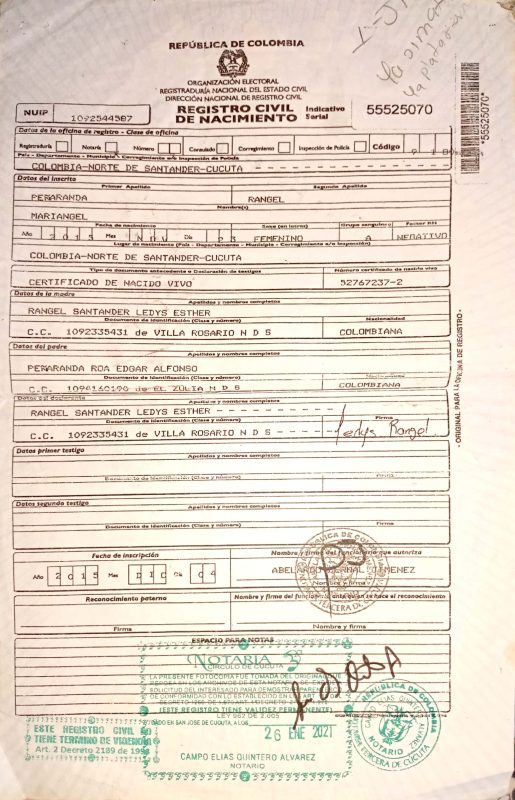 REPÚBLICA DE COLOMBIA
ORGANIZACIÓN ELECTORAL
REGISTRADURÍA NACIONAL DEL ESTADO CIVIL
DIRECCIÓN NACIONAL DE REGISTRO CIVIL
NUIP 1092544587
REGISTRO CIVIL DE NACIMIENTO
Indicativo Serial 55525070
*55525070*
Datos de la oficina de registro - Clase de oficina
Registraduría Notaría Número Consulado Corregimiento Inspección de Policía Código
País - Departamento - Municipio - Corregimiento e/o Inspección de Policía
COLOMBIA-NORTE DE SANTANDER-CUCUTA
Datos del inscrito
Primer Apellido Segundo Apellido
PEÑARANDA RANGEL
Nombre(s)
MARIANGEL
Fecha de nacimiento Sexo (en letras) Grupo sanguíneo Factor RH
Año 2015 Mes NOV Día 23 FEMENINO A NEGATIVO
Lugar de nacimiento (País - Departamento - Municipio - Corregimiento e/o Inspección)
COLOMBIA-NORTE DE SANTANDER-CUCUTA
Tipo de documento antecedente o Declaración de testigos Número certificado de nacido vivo
CERTIFICADO DE NACIDO VIVO 52767237-2
Datos de la madre
Apellidos y nombres completos
RANGEL SANTANDER LEDYS ESTHER
Documento de identificación (Clase y número) Nacionalidad
C.C. 1092335431 de VILLA ROSARIO N D S COLOMBIANA
Datos del padre
Apellidos y nombres completos
PEÑARANDA ROA EDGAR ALFONSO
Documento de identificación (Clase y número) Nacionalidad
C.C. de EL ZULIA N D S COLOMBIANA
Datos del declarante
Apellidos y nombres completos
RANGEL SANTANDER LEDYS ESTHER
Documento de identificación (Clase y número) Firma
C.C. 1092335431 de VILLA ROSARIO N D S Ledys Rangel
Datos primer testigo
Apellidos y nombres completos
Documento de identificación (Clase y número) Firma
Datos segundo testigo
Apellidos y nombres completos
Documento de identificación (Clase y número) Firma
Fecha de inscripción Nombre y firma del funcionario que autoriza
Año 2015 Mes DIC Día 04
JIMENEZ
Nombre y firma
Reconocimiento paterno Nombre y firma del funcionario ante quien se hace el reconocimiento
Firma Nombre y firma
ESPACIO PARA NOTAS
- ORIGINAL PARA LA OFICINA DE REGISTRO -
NOTARIA 3
CIRCULO DE CUCUTA
LA PRESENTE FOTOCOPIA FUE TOMADA DEL ORIGINAL QUE
REPOSA EN LOS ARCHIVOS DE ESTA NOTARIA
SOLICITUD DEL INTERESADO PARA DEMOSTRAR PARENTESCO
DE CONFORMIDAD CON LO ESTABLECIDO EN
(ESTE REGISTRO TIENE VALIDEZ PERMANENTE)
LEY 962 DE 2.005
DADO EN SAN JOSE DE CUCUTA, A LOS
26 ENE 2021
CAMPO ELIAS QUINTERO ALVAREZ
NOTARIO
ESTE REGISTRO CIVIL NO
TIENE TERMINO DE VIGENCIA
Art. 2 Decreto 2189 de
REPUBLICA DE COLOMBIA
NOTARIO
TERCERA DE CUCUTA